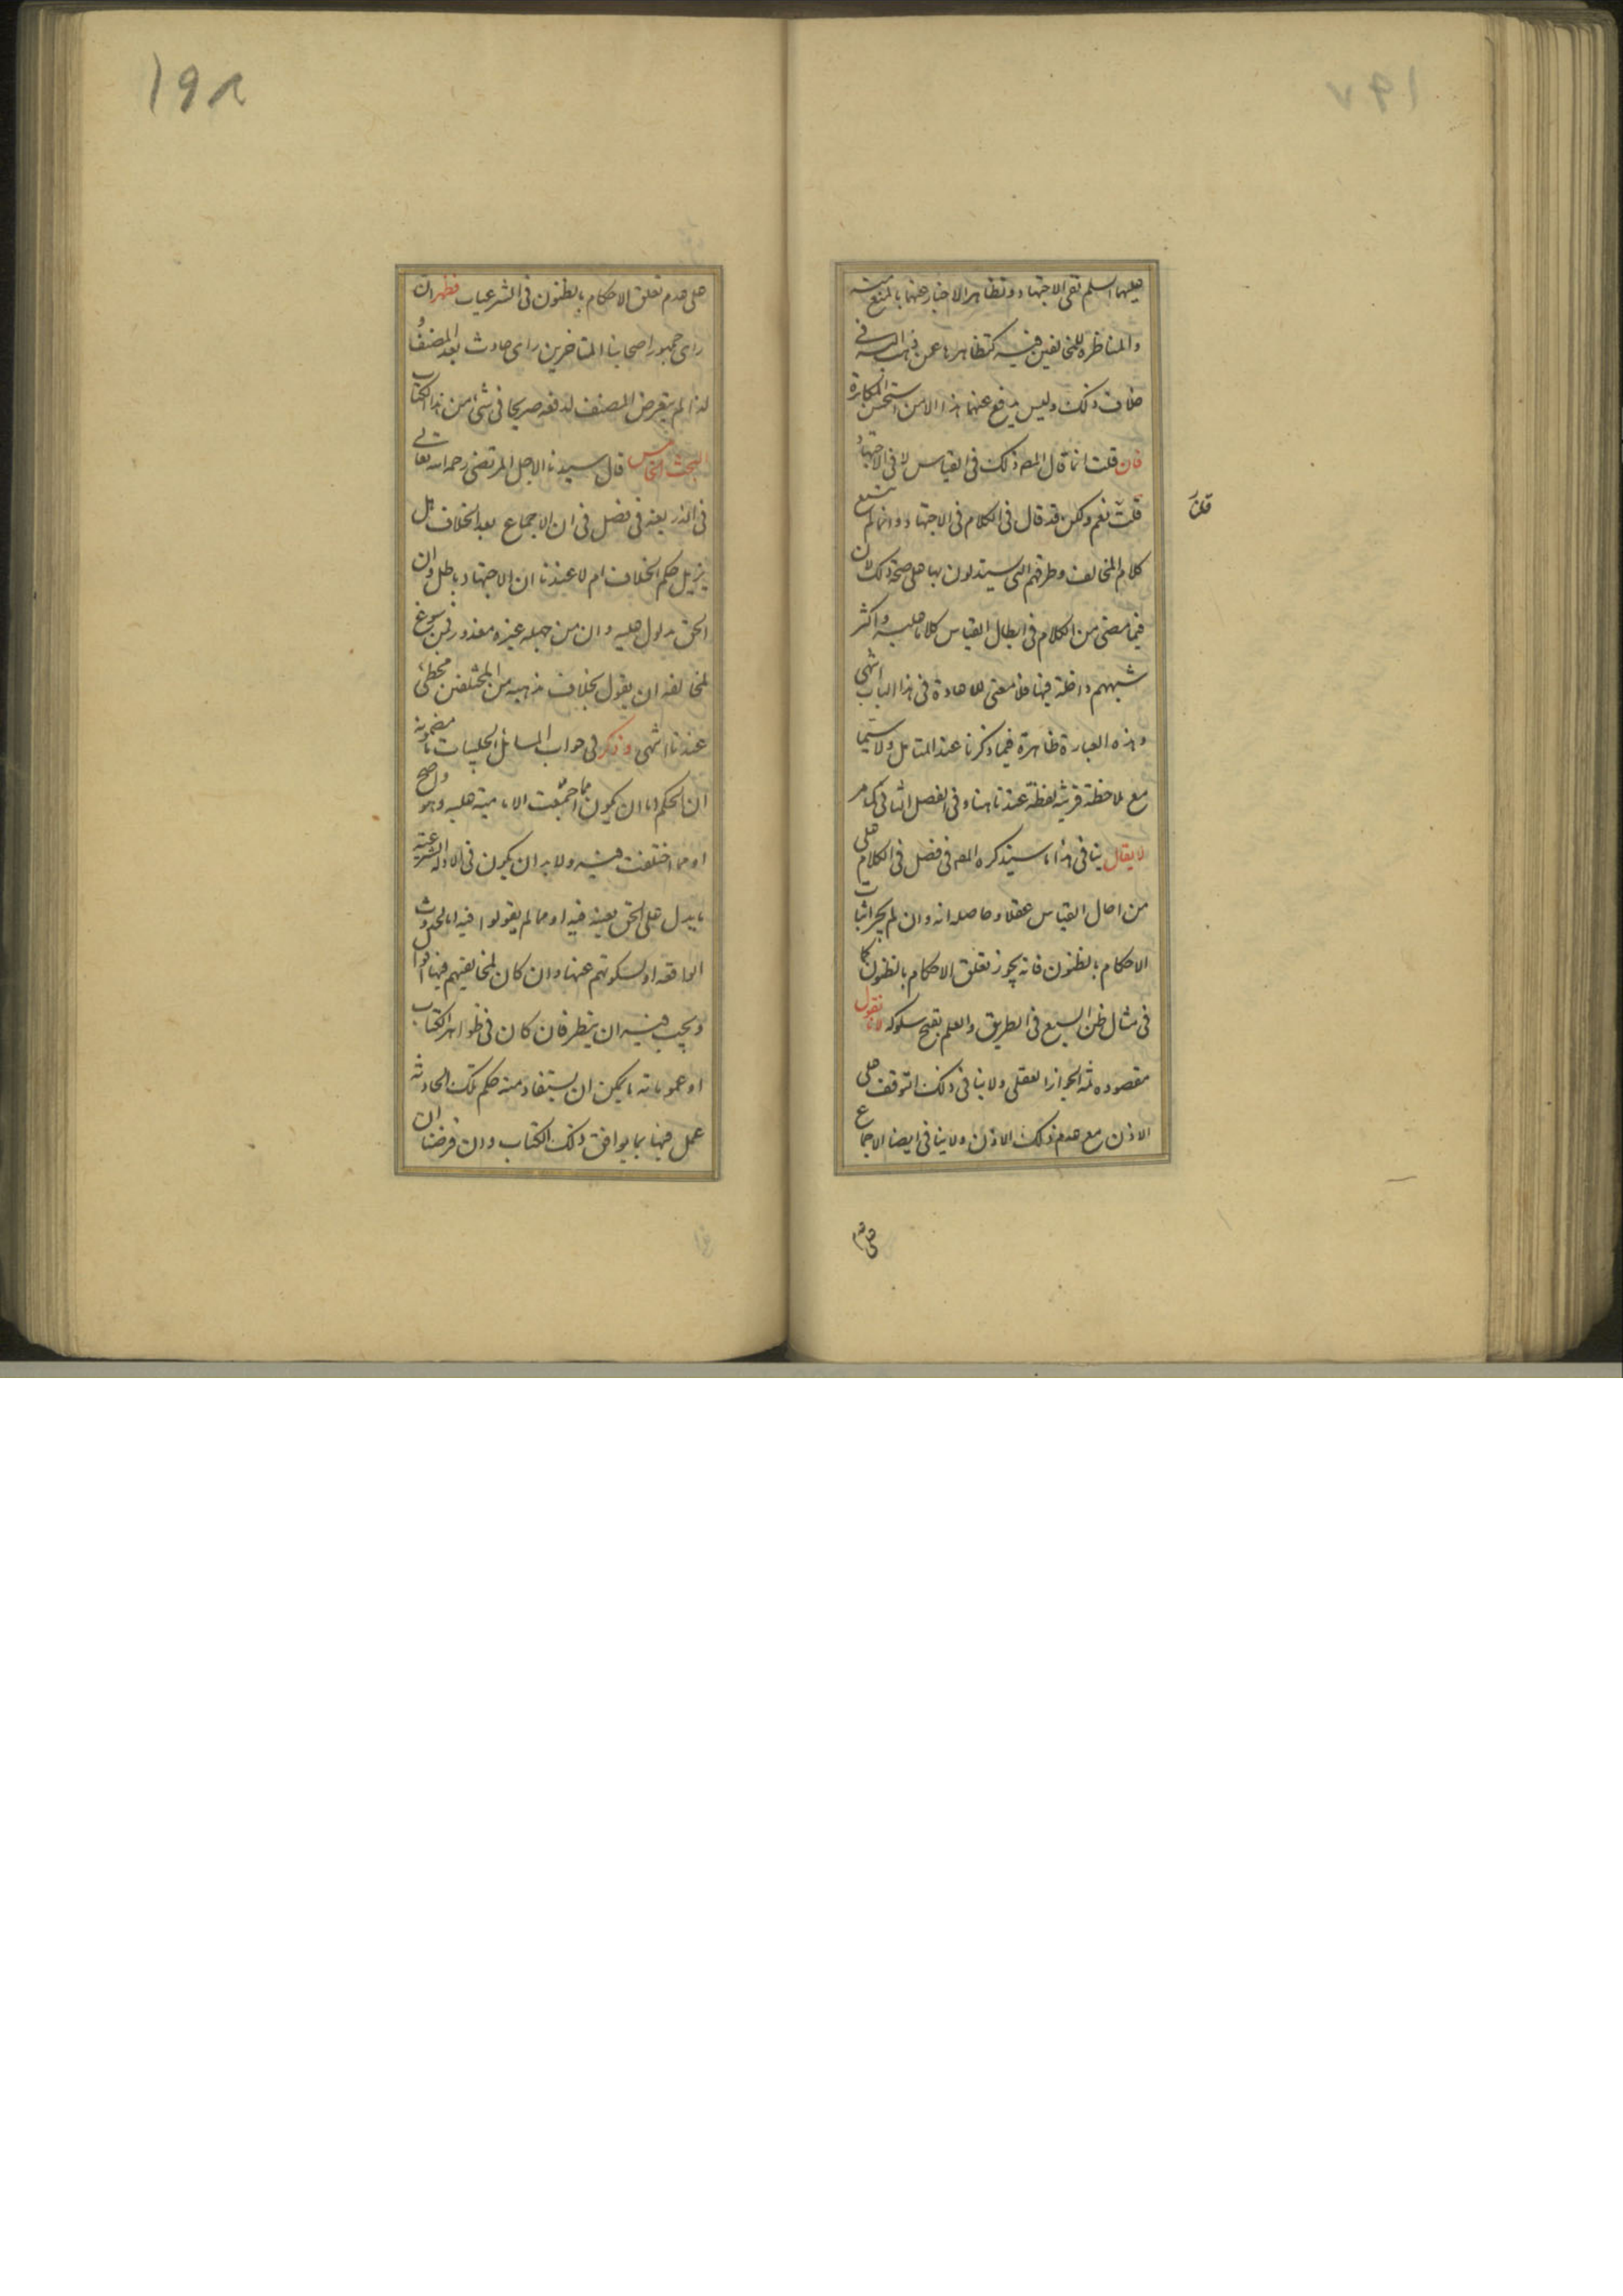 ١٩٧
عليهما السلم نفى الاجتهاد وتظاهر الاخبار عنهما بالمنع منه
والمناظرة للمخالفين فيه كتظاهرها عمن ذهب اليه فى
خلاف ذلك وليس يدفع عنهما هذا الا من استحسن المكابرة
فان قلت انما قال المصـ ذلك فى القياس لا فى الاجتهاد
قلت نعم ولكن قد قال فى الكلام فى الاجتهاد وانما لم نتبع
قلنا
كلام المخالف وطرقهم التى يستدلون بها على صحة ذلك لان
فيما مضى من الكلام فى ابطال القياس كلاما عليه واكثر
شبههم داخلة فيها فلا معنى للاعادة فى هذا الباب انتهى
وهذه العبارة ظاهرة فيما ذكرنا عند المتامل ولا سيما
مع ملاحظة قرينة لفظة عندنا هنا وفى الفصل الثانى كما مر
لا يقال ينافى هذا ما سيذكره المصـ فى فصل فى الكلام على
من احال القياس عقلا وحاصله انه وان لم يجز اثبات
الاحكام بالظنون فانه يجوز تعلق الاحكام بالظنون كما
فى مثال ظن السبع فى الطريق والعلم بقبح سلوكه لانا نقول
مقصوده ثمة الجواز العقلى ولا ينافى ذلك التوقف على
الاذن مع عدم ذلك الاذن ولا ينافى ايضا الاجماع
على عدم
١٩٨
على عدم تعلق الاحكام بالظنون فى الشرعيات فظهر ان
راى جمهور اصحابنا المتاخرين راى حادث بعد المصنف و
لذا لم يتعرض المصنف لدفعه صريحا فى شئ من هذا الكتاب
البحث الخامس قال سيدنا الاجل المرتضى رحمه الله تعالى
فى الذريعة فى فصل فى ان الاجماع بعد الخلاف هل
يزيل حكم الخلاف ام لا عندنا ان الاجتهاد باطل وان
الحق مدلول عليه وان من جهله غير معذور فمن سوغ
لمخالفه ان يقول بخلاف مذهبه من المختلفين مخطئ
عندنا انتهى وذكر فى جواب المسائل الحلبيات ما مضمونه
ان الحكم اما ان يكون مما اجمعت الامامية عليه وهو واضح
او مما اختلفت فيه ولا بد ان يكون فى الادلة الشرعية
ما يدل على الحق بعينه فيه او مما لم يقولوا فيه اما لحدوث
الواقعة او لسكوتهم عنها وان كان لمخالفيهم فيها اقوال
ويجب فيه ان ينظر فان كان فى ظواهر الكتاب
او عموماته ما يمكن ان يستفاد منه حكم تلك الحادثة
عمل فيها بما يوافق ذلك الكتاب وان فرضنا ان